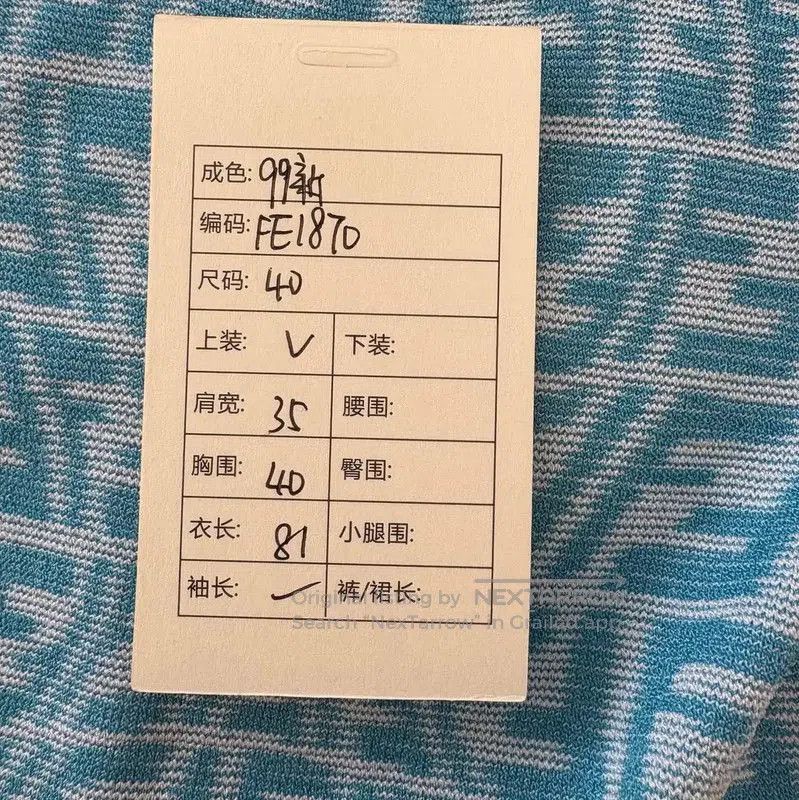 成色: 99新
编码: FE1870
尺码: 40
上装: V 下装:
肩宽: 35 腰围:
胸围: 40 臀围:
衣长: 81 小腿围:
袖长: — 裤/裙长:
Original listing by NEXTARROW
Search "NexTarrow" in Grailed app